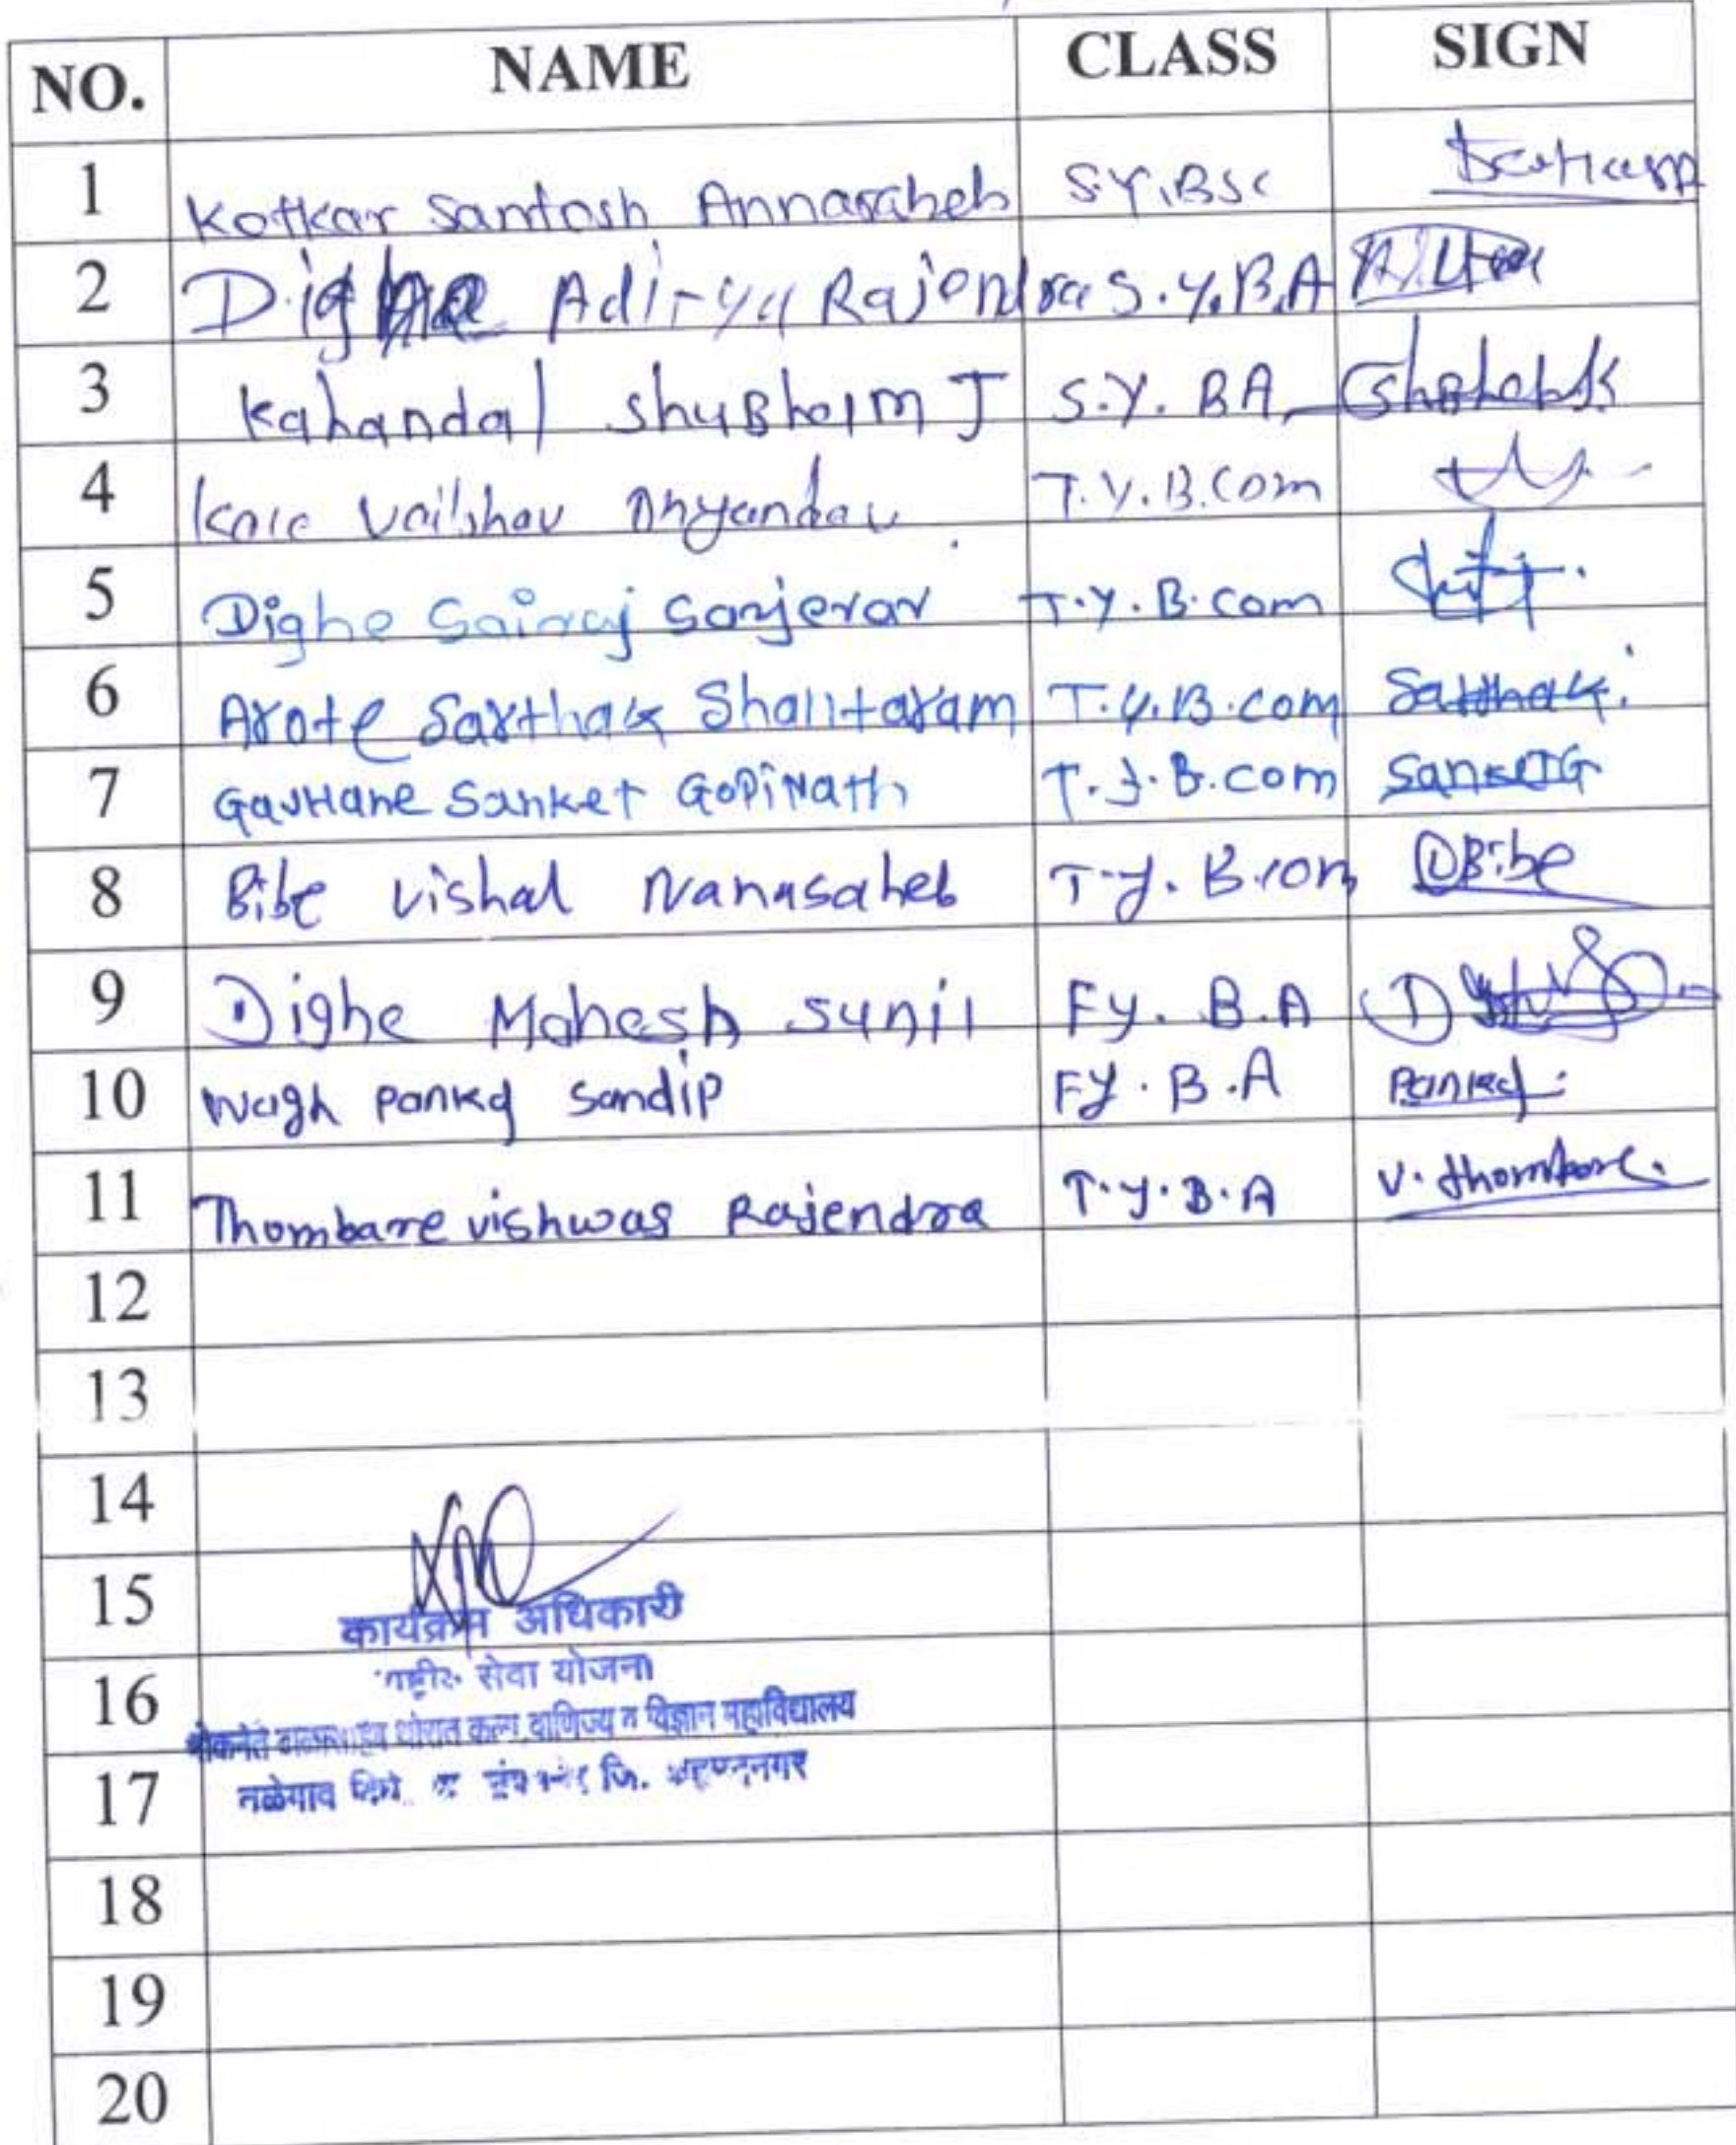 NO. NAME CLASS SIGN
1 Kotkar Santosh Annasaheb S.Y.BSc
2 Dighe Aditya Rajendra S.Y.B.A
3 Kahandal Shubham J S.Y. BA
4 Vaibhav T.Y.B.Com
5 Dighe Sairaj Sanjevar T.Y.B.com
6 Arote Sarthak Shantaram T.Y.B.com Sarthak.
7 GavHane Sanket GoPiNath T.Y.B.com SanketG
8 Bibe Vishal Nanasaheb T.y. B.com Bibe
9 Dighe Mahesh sunil Fy. B.A
10 Wagh Pankaj Sandip FY.B.A Pankaj
11 Thombare vishwas Rajendra T.Y.B.A V.thombare.
12
13
14
15
कार्यक्रम अधिकारी
सेवा योजना
16
थोरात कला, वाणिज्य व विज्ञान महाविद्यालय
17
तळेगाव दिघे जि.
18
19
20